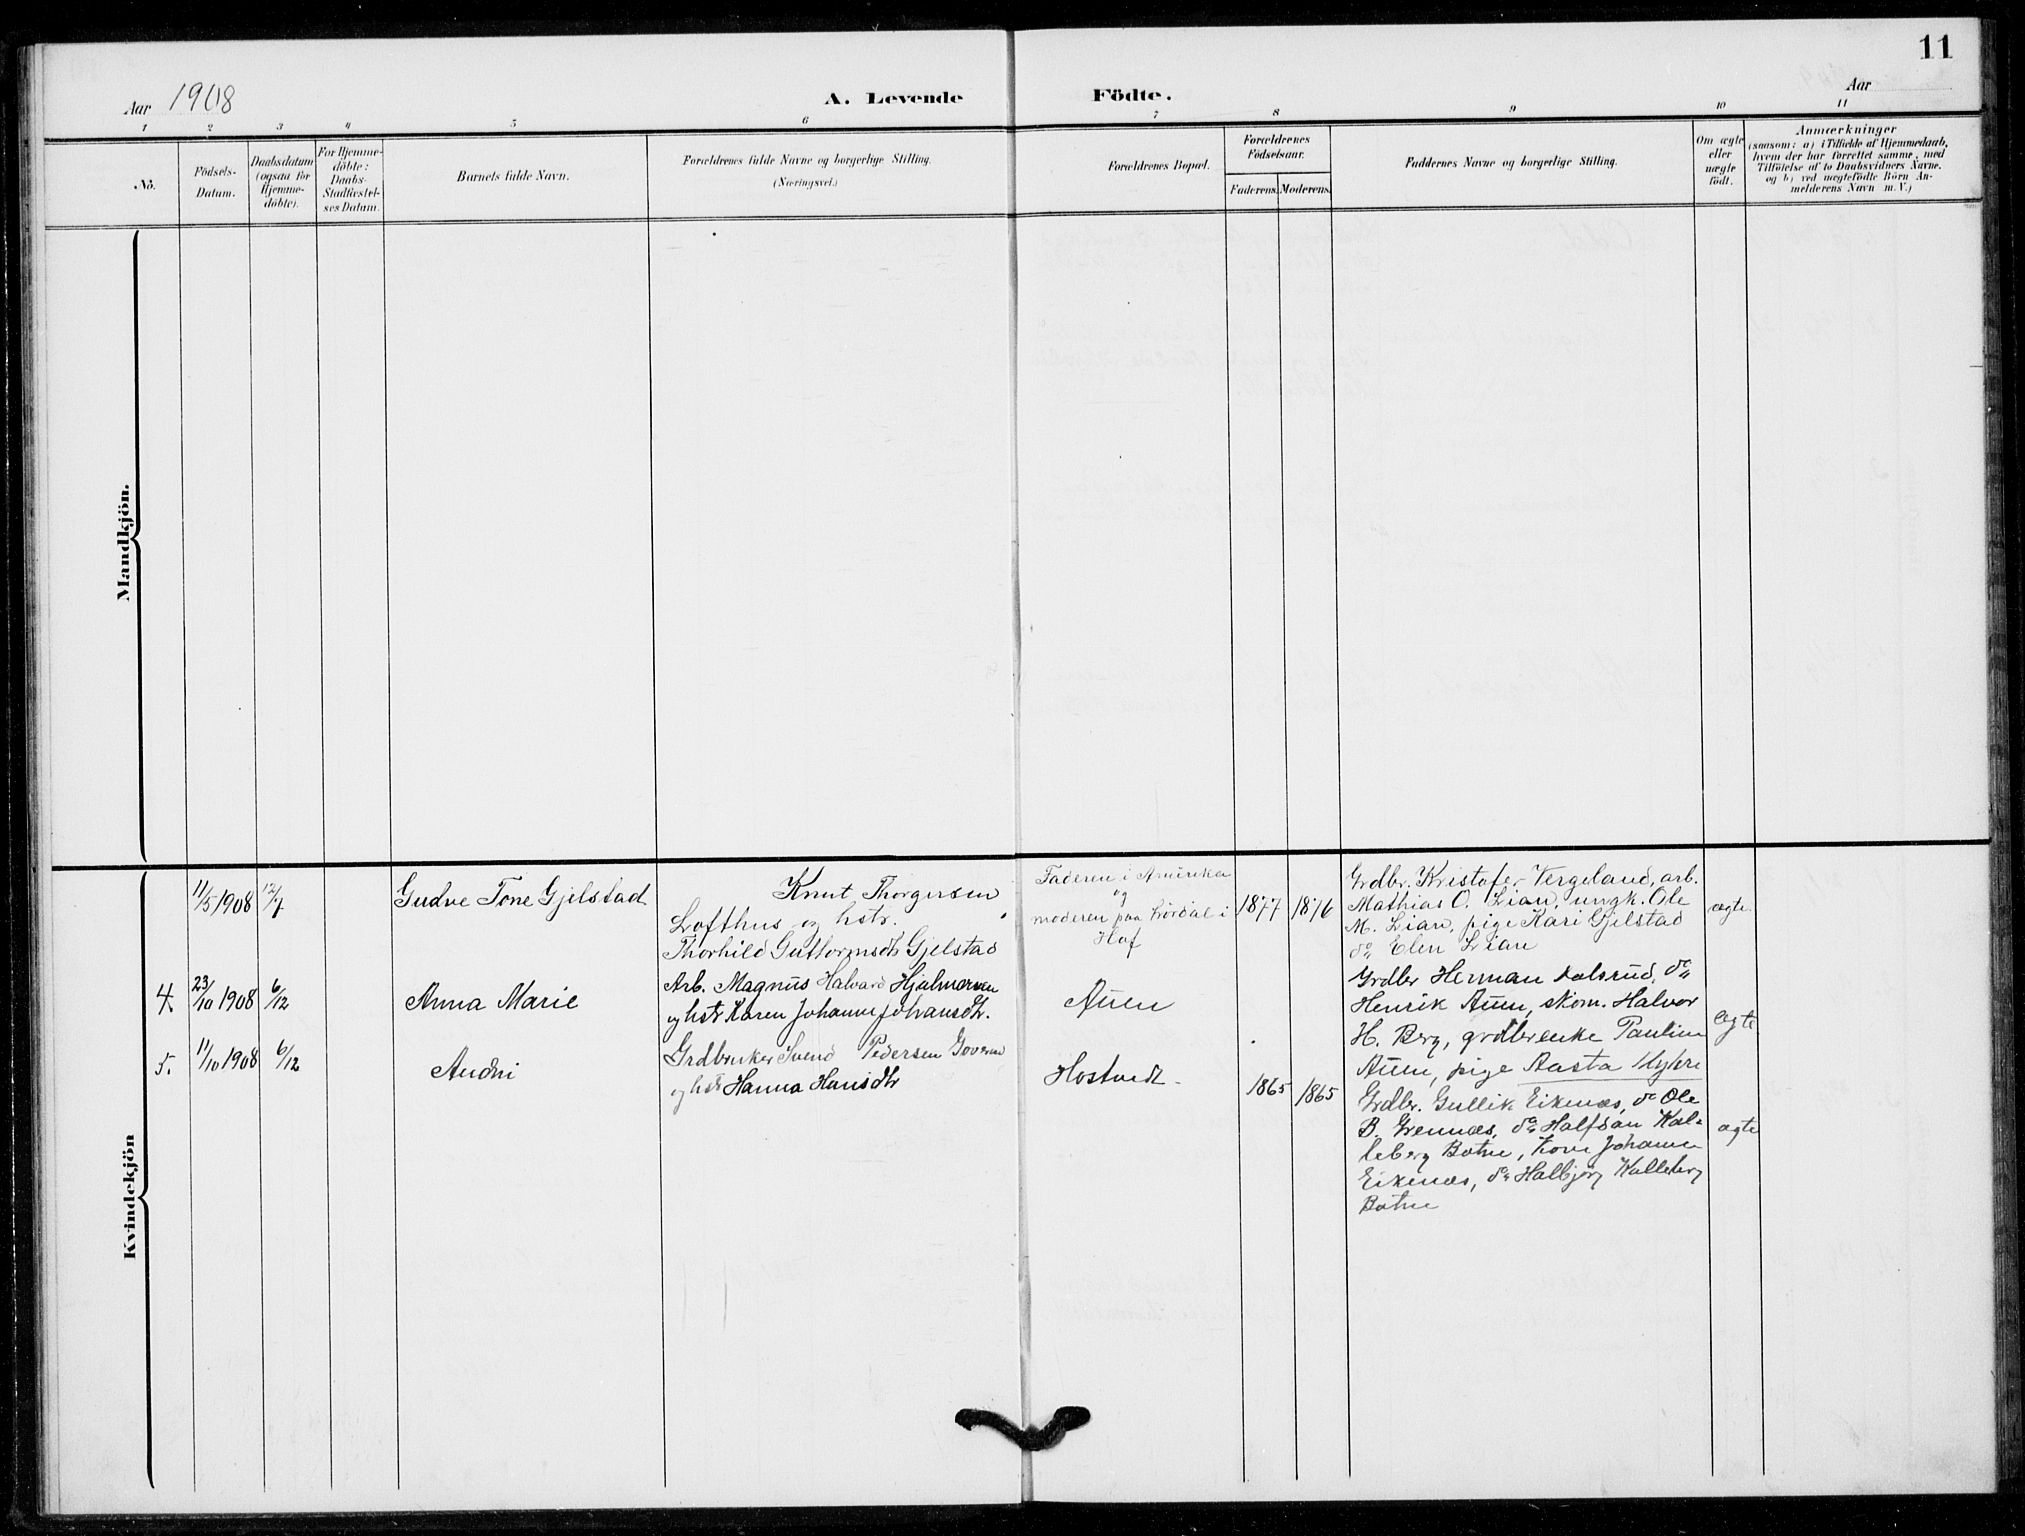 11
Aar 1908
A. Levende Födte.
Aar
1 2 3 4 5 6 7 8 9 10 11
No.
Födsels-
Datum.
Daabsdatum
(ogsaa for
Hjemme-
döbte).
For Hjemme-
döbte:
Daabs-
Stadfæstel-
ses Datum.
Barnets fulde Navn.
Forældrenes fulde Navne og borgerlige Stilling.
(Næringsvei.)
Forældrenes Bopæl.
Forældrenes
Födselsaar.
Faderens. Moderens.
Faddernes Navne og borgerlige Stilling.
Om ægte
eller
uægte
födt.
Anmærkninger
(saasom: a) i Tilfælde af Hjemmedaab,
hvem der har forrettet samme, med
Tilföielse af to Daabsvidners Navne.
og b) ved uægtefödte Börn An-
melderens Navn m. V.)
Mandkjön.
Kvindekjön
11/5 1908
12/7
Gudve Tone Gjelstad
Knut Thorgersen
Lofthus og hstr.
Thorhild Guttormsdtr Gjelstad
Faderen i Amerika
og
moderen paa i
Hof
1877 1876
Grdbr. Kristofer Vergeland, arb.
Mathias O. Lian, ungk. Ole
M. Lian, pige Kari Gjelstad
do Elen Lian
ægte
4.
23/10 1908
6/12
Anna Marie
Arb. Magnus Halvard Hjalmersen
og hstr Karen Johanne Johansdtr.
Auen
Grdbr Herman do
Henrik Auen, skom. Halvor
H. Berg, grdbrenke Pauline
Auen, pige Aasta Myhre
ægte
5.
11/10 1908
6/12
Andni
Grdbruker Svend Pedersen
og hstr Hanna Hansdtr
Hostvedt
1865 1865
Grdbr. Gullik Eikenæs, do Ole
B. Grennæs, do Halfdan Kal-
leberg Botne, Kone Johanne
Eikenæs, do Halbjørg Kalleberg
Botne
ægte